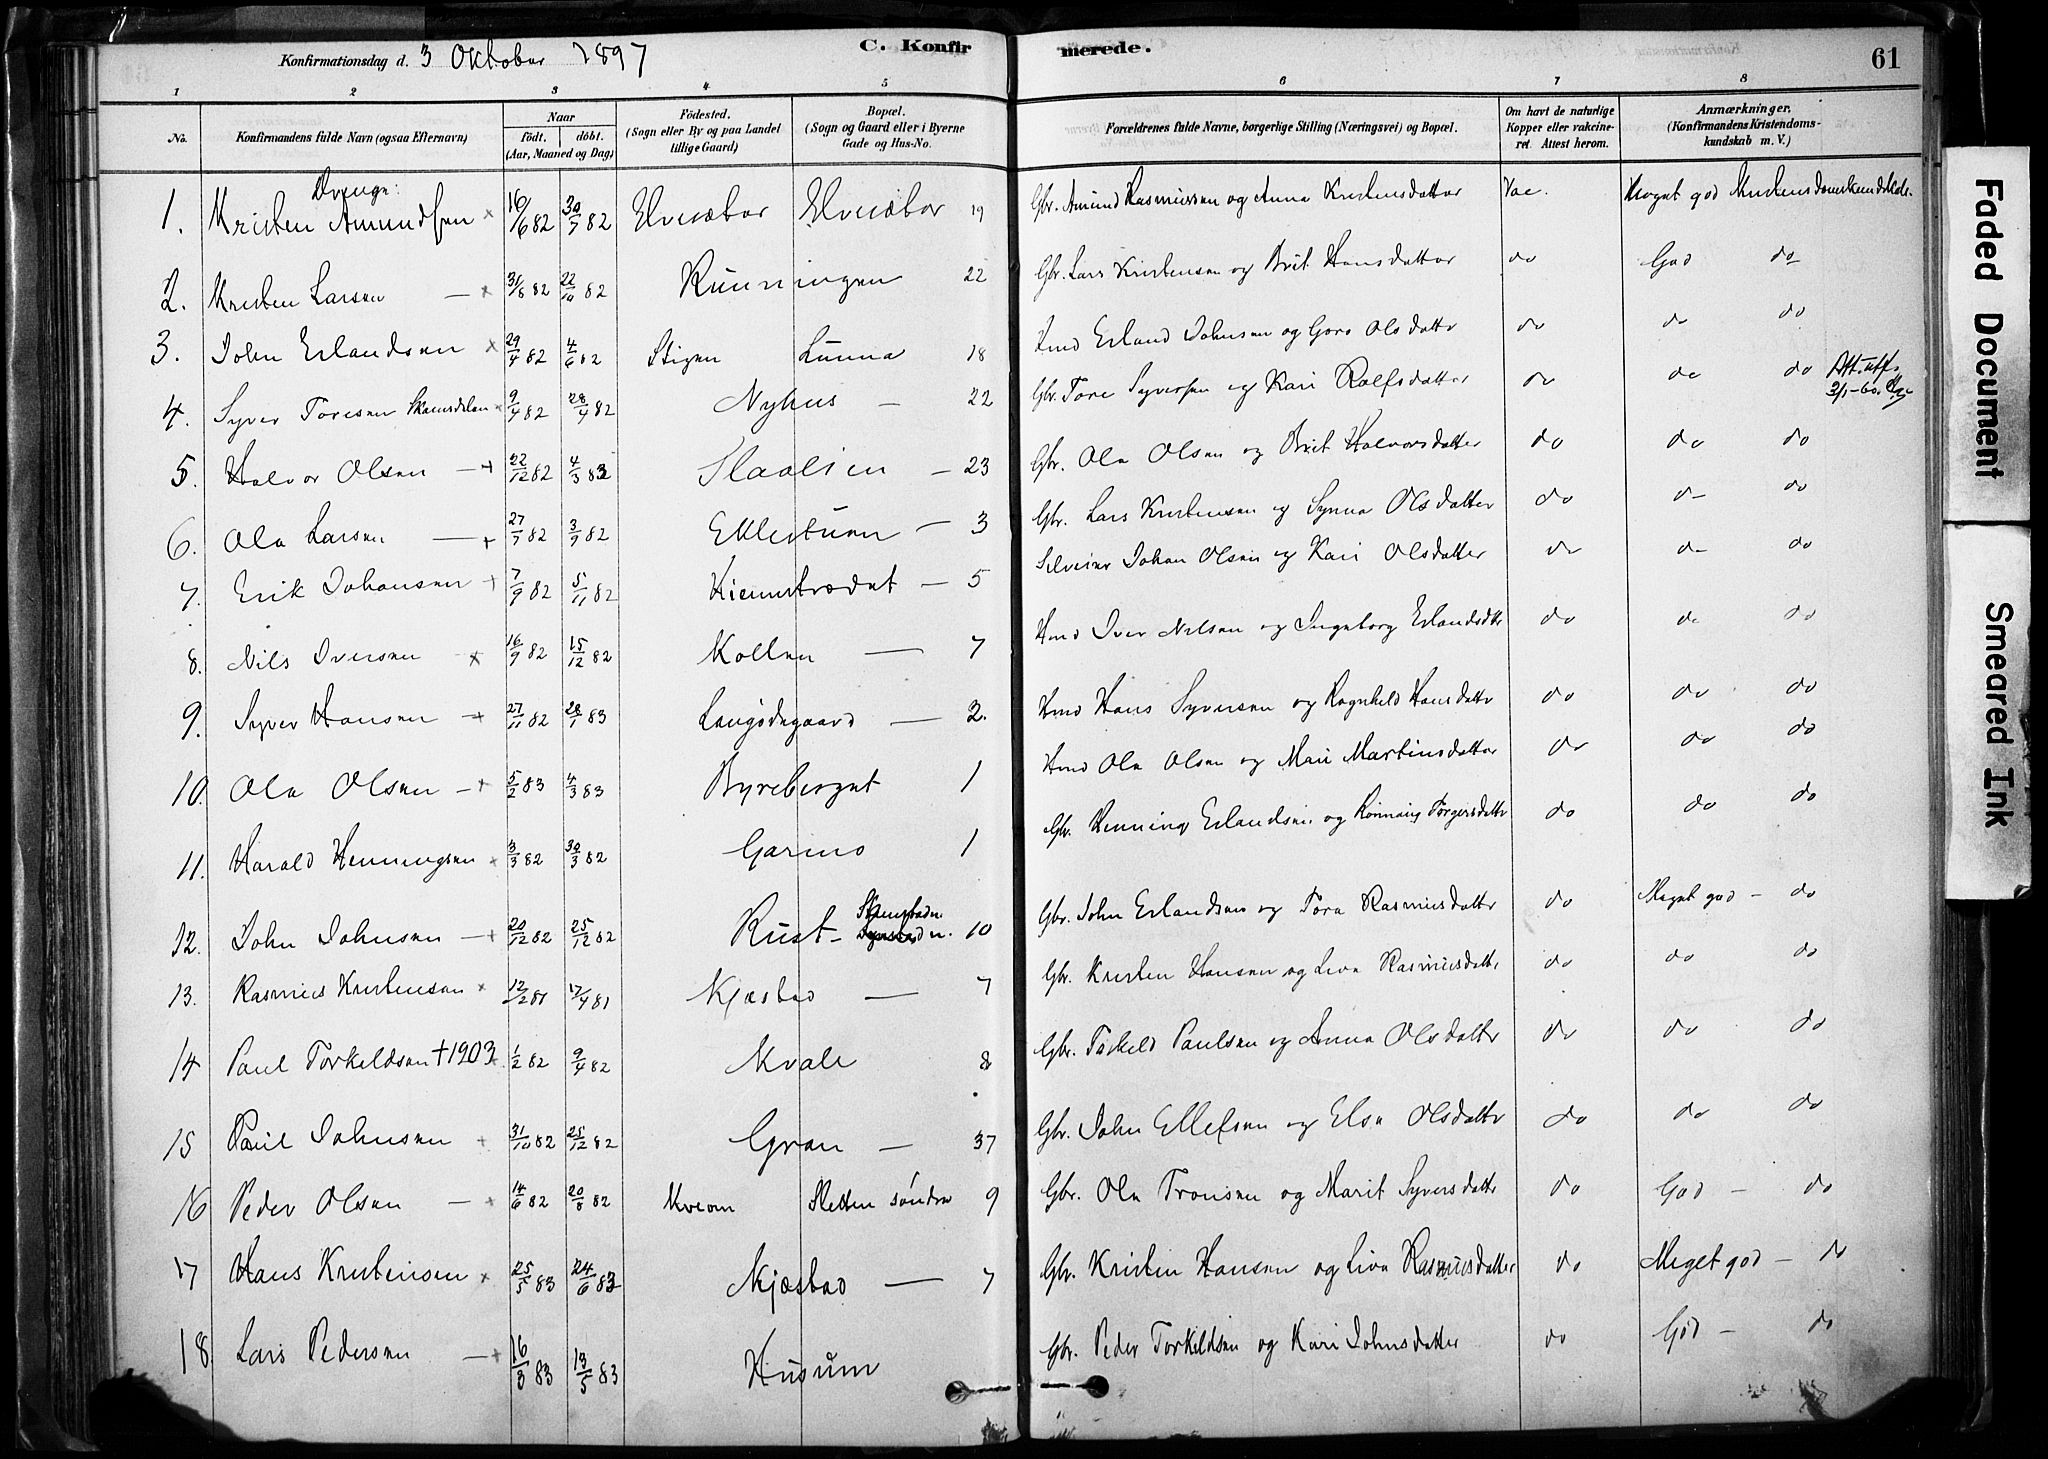 Konfirmationsdag d. 3 Oktober 1897
C. Konfirmerede.
61
1 2 3 4 5 6 7 8
No.
Konfirmandens fulde Navn (ogsaa Efternavn)
Naar
født. døbt.
(Aar, Maaned og Dag)
Fødested.
(Sogn eller By og paa Landet
tillige Gaard)
Bopæl.
(Sogn og Gaard eller i Byerne
Gade og Hus-No.
Forældrenes fulde Navne, borgerlige Stilling (Næringsvei) og Bopæl.
Om havt de naturlige
Kopper eller vakcine-
ret. Attest herom.
Anmærkninger.
(Konfirmandens Kristendoms-
kundskab m. V.)
Drenge:
1. Kristen Amundsen × 16/6 82 30/7 82 Elvesæter Elvesæter 19 Gbr. Amund Rasmussen og Anna Kristensdatter Vac. Meget god Kristendomskundskab.
2. Kristen Larsen — × 31/8 82 22/10 82 Runningen 22 Gbr. Lars Kristensen og Brit Hansdatter do God do
3. John Erlandsen × 29/4 82 4/6 82 Stigen Lunna 18 Hmd Erland Johnsen og Goro Olsdatter do do do
4. Syver Toresen × 9/4 82 28/4 82 Nyhus — 22 Gbr. Tore Syversen og Kari Rolfsdatter do do do Att. utst.
5. Halvor Olsen — + 22/12 82 4/3 83 Slaalien — 23 Gbr. Ola Olsen og Brit Halvorsdatter do do do
6. Ola Larsen — + 27/7 82 3/9 82 — 3 Gbr. Lars Kristensen og Synna Olsdatter do do do
7. Erik Johansen + 7/9 82 5/11 82 — 5 Selveier Johan Olsen og Kari Olsdatter do do do
8. Nils Iversen × 16/9 82 15/12 82 Kollen — 7 Hmd Iver Nilsen og Ingeborg Erlandsdtr do do do
9. Syver Hansen — + 27/11 82 28/1 83 — 2. Hmd Hans Syversen og Ragnhild Hansdatter do do do
10. Ola Olsen — + 5/2 83 4/3 83 Byreberget 1 Hmd Ola Olsen og Mari Martinsdatter do do do
11. Harald Henningsen × 3/3 82 30/3 82 Garmo 1 Gbr. Henning Erlandsen og Rønnaug Torgersdatter do do do
12. John Johnsen — + 20/12 82 25/12 82 Rust - 10 Gbr. John Erlandsen og Tora Rasmusdatter do Meget god — do
13. Rasmus Kristensen × 12/2 81 17/4 81 Kjæstad — 7 Gbr. Kristen Hansen og Liva Rasmusdatter do do do
14 Paul Torkeldsen † 1903 × 1/2 82 9/4 82 Kvale 8 Gbr. Torkeld Paulsen og Anna Olsdatter do do do
15 Paul Johnsen + 31/10 82 25/12 82 Gran — 37 Gbr. John Ellefsen og Elsa Olsdatter do do do
16 Peder Olsen — × 14/6 82 20/8 82 Kvam Sletten søndre 9 Gbr. Ola Tronsen og Marit Syversdatter do God — do
17 Hans Kristensen × 25/5 83 24/6 83 Kjæstad — 7 Gbr. Kristen Hansen og Liva Rasmusdatter do Meget god — do
18. Lars Pedersen — + 16/3 83 13/5 83 Husum Gbr. Peder Torkildsen og Kari Johnsdatter do God — do
Faded Document
Smeared Ink